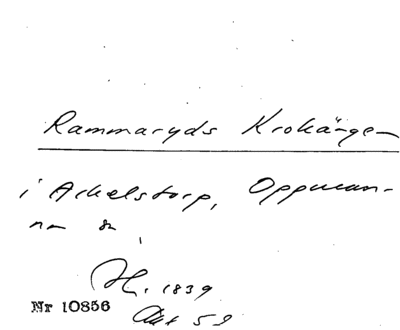 Rammaryds Krokängen
i Arkelstorp, Oppman-
na sn
H. 1839
Nr 10856
Akt 59